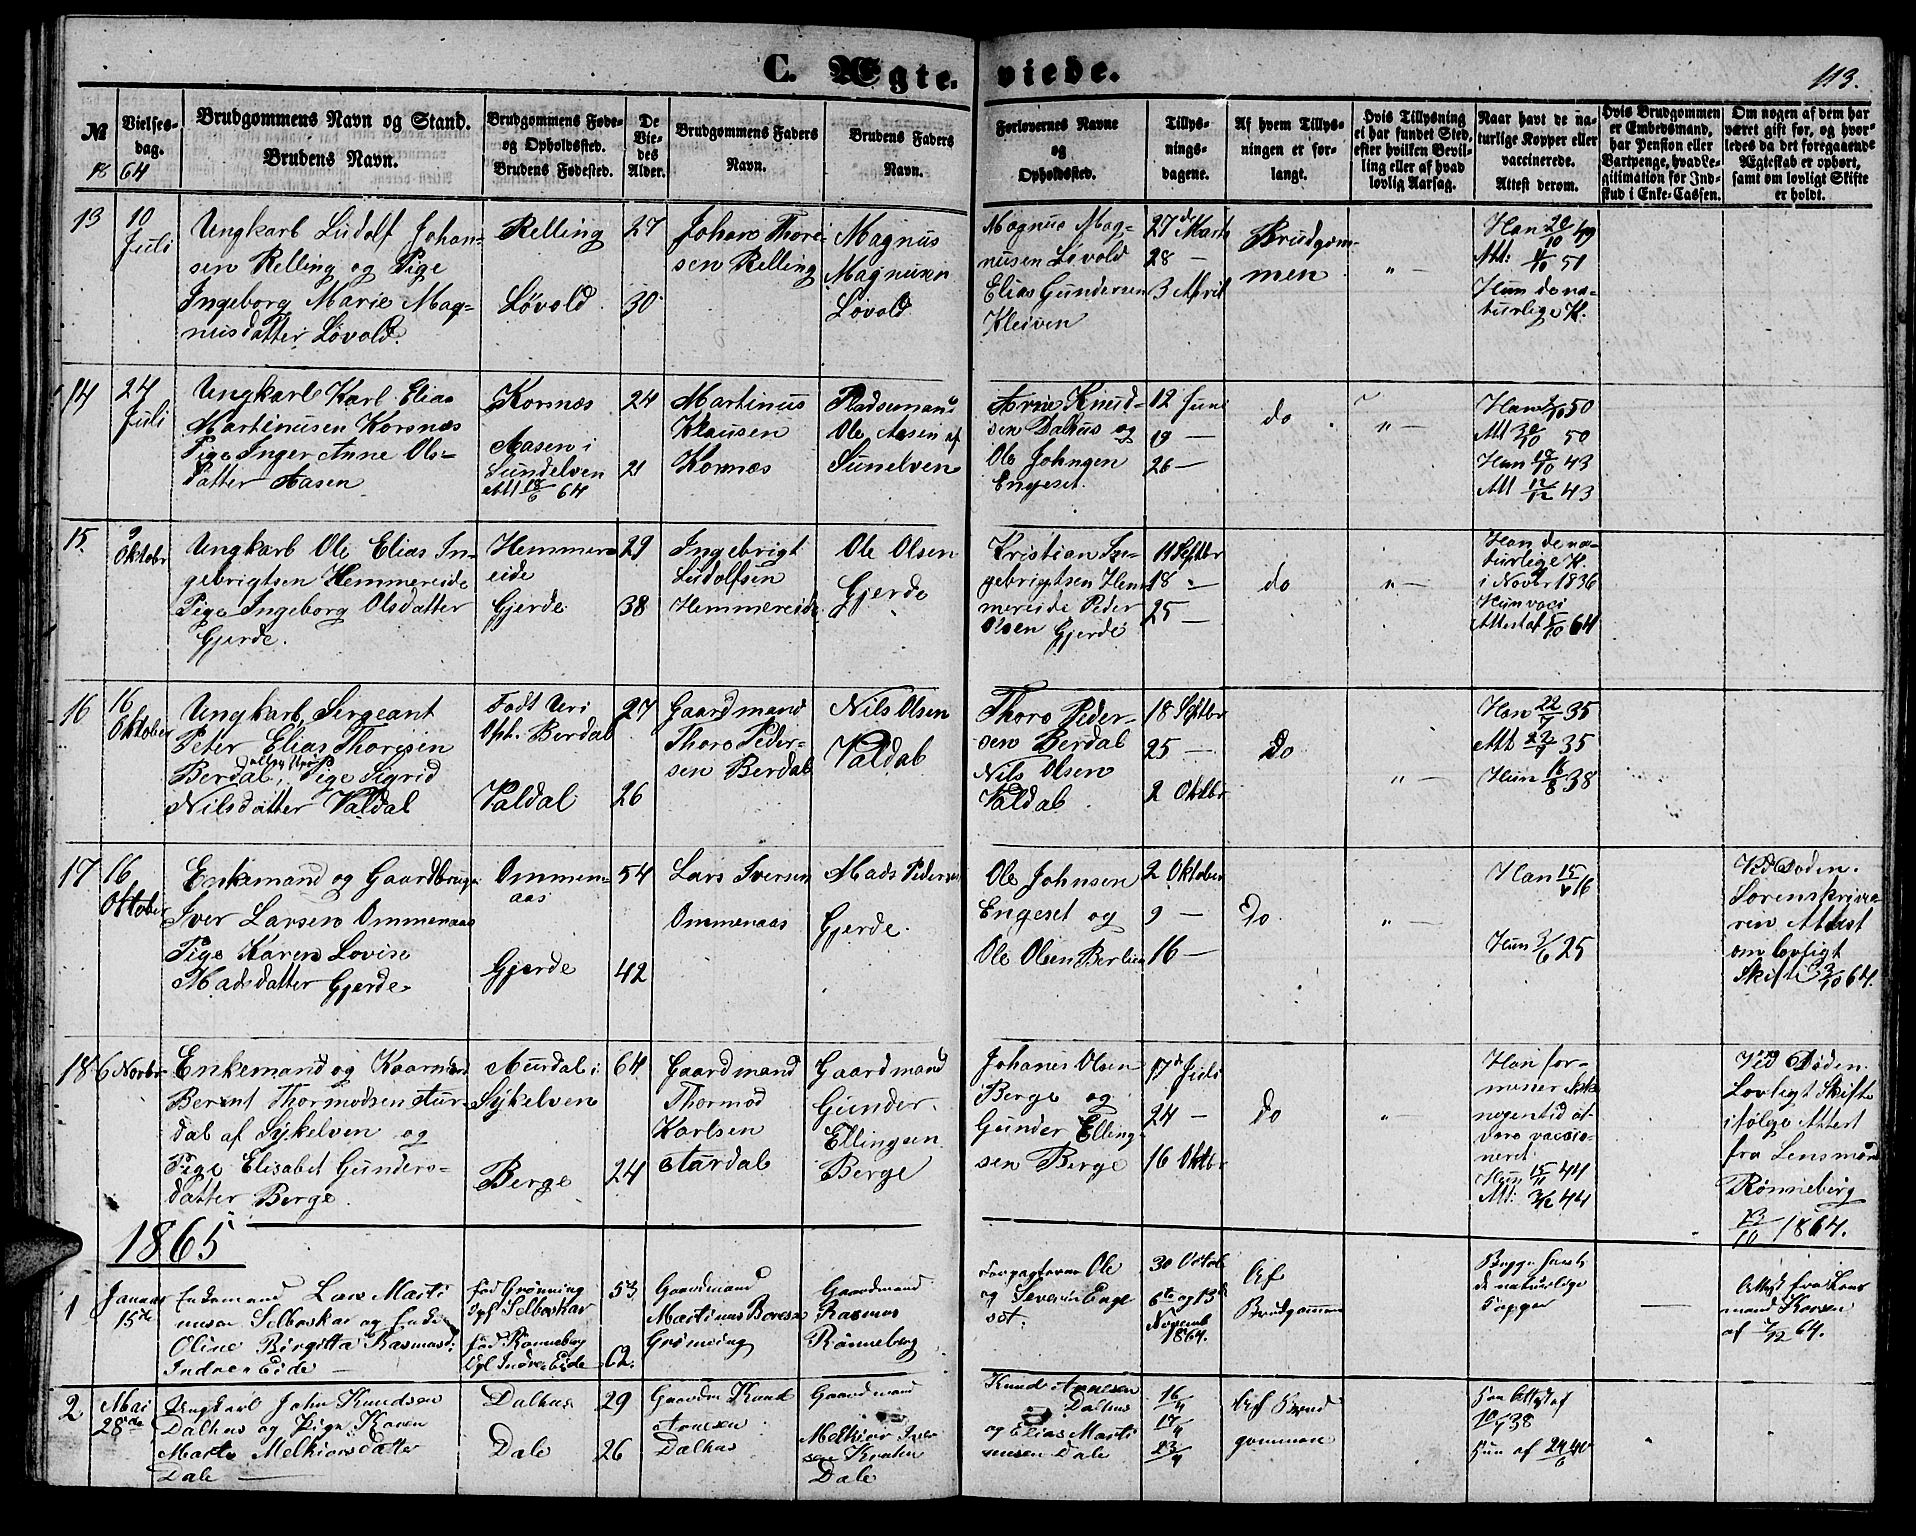 C. Ægte-
viede.
113.
No
1864
Vielses-
dag.
Brudgommens Navn og Stand.
Brudens Navn.
Brudgommens Føde-
og Opholdssted.
Brudens Fødested.
De
Vie-
des
Alder.
Brudgommens Faders
Navn.
Brudens Faders
Navn.
Forlovernes Navne
og
Opholdssted.
Tillys-
nings-
dagene.
Af hvem Tillys-
ningen er for-
langt.
Hvis Tillysning
ei har fundet Sted,
efter hvilken Bevil-
ling eller af hvad
lovlig Aarsag.
Naar havt de na-
turlige Kopper eller
vaccinerede.
Attest derom.
Hvis Brudgommen
er Embedsmand,
har Pension eller
Vartpenge, hvad Le-
gitimation for Ind-
skud i Enke-Cassen.
Om nogen af dem har
været gift før, og hvor-
ledes da det foregaaende
Ægteskab er ophørt,
samt om lovligt Skifte
er holdt.
13
10
Juli
Ungkarl Ludolf Johan-
sen Relling og Pige
Ingeborg Marie Mag-
nusdatter Løvold.
Relling
Løvold
27
30
Johan Thore-
sen Relling
Magnus
Magnusen
Løvold
Magnus Mag-
nusen Løvold
Elias Gundersen
Kleiven
27de Marts
28 —
3 April
Brudgom-
men
" —
Han 20/10 49
Att: 50
Hun de na-
turlige K.
14
24
Juli
Ungkarl Karl Elias
Martinusen Korsnæs
Pige Inger Anne Ols-
datter Aasen
Korsnæs
Aasen i
Sundelven
Att 18/6 64
24
21
Martinus
Klausen
Korsnæs
Pladsemand
Ole Aasen af
Sunelven
Arne Knud-
sen Dalhus og
Ole Johnsen
Engeset
12 Juni
19 —
26 —
do
" —
Han 50
Att 30/10 50
Hun 43
Att 12/12 43
15.
9
Oktobr
Ungkarl Ole Elias In-
gebrigtsen Hemmereide
Pige Ingeborg Olsdatter
Gjerde.
Hemmer-
eide
Gjerde
29
38
Ingebrigt
Ludolfsen
Hemmereide
Ole Olsen
Gjerde
Kristian In-
gebrigtsen Hem-
mereide Peder
Olsen Gjerde
11 Septbr
18 "
25 —
do
" —
Han de na-
turlige K.
i Novbr 1836
Hun vaci
Attest af 5/10 64
16
16
Oktober
Ungkarl, Sergeant
Peter Elias Thoresen
Berdal, Pige Sigrid
Nilsdatter Valdal
Født Uri
Oph. Berdal
Valdal
27
26
Gaardmand
Thore Peder-
sen Berdal
Nils Olsen
Valdal
Thore Peder-
sen Berdal
Nils Olsen
Valdal
18 Septbr
25 —
2 Oktbr
Do
" —
Han 22/7 35
Att 35
Hun 16/8 38
17
16
Oktober
Enkemand og Gaardbruger
Iver Larsen Ommenaas
Pige Karen Lovise
Madsdatter Gjerde
Ommen-
aas
Gjerde
54
42
Lars Iversen
Ommenaas
Mads Pedersen
Gjerde.
Ole Johnsen
Engeset og
Ole Olsen Berlien
2 Oktober
9 —
16 —
Do
" —
Han 16
Hun 3/6 25
Ved Døden.
Sorenskrive-
ren Attest
om lovligt
Skifte 3/10 64.
18
6 Novbr
Enkemand og Kaarmand
Berent Thormodsen Aur-
dal af Sykelven og
Pige Elisabet Gunders-
datter Berge.
Aurdal i
Sykelven
Berge
64
24
Gaardmand
Thormod
Karlsen
Aurdal
Gaardmand
Gunder
Ellingsen
Berge
Johanes Olsen
Berge og
Gunder Elling-
sen Berge
17de Juli
24 —
16 Oktbr
do
" —
Han for-
mener ikke
nogentid at
være vacci-
neret
Hun 15/11 44
Att: 44
Ved Døden.
Lovligt Skifte
ifølge Attest
fra Lensmand
Rønneberg
1864.
1865
1
Januar
15de
Enkemand Lars Marti
nusen Selboskar og Enke
Oline Birgitta Rasmusd:
Indre Eide —
Fød Grønning
Opf Selboskar
Fød Rønneberg
Opf Indre Eide
53
62
Gaardmand
Martinus Boresen
Grønning
Gaardmand
Rasmus
Rønneberg
Forpagterne Ole
og Severin Enge
set.
30 Octob
6te og 13de
Novemb
1864.
Af
Brudgommen
Begge havt
de naturlige
Copper
—
Attest fra Lens
mand Korsen
af 7/12 64.
2
Mai
28de
Ungkarl John Knudsen
Dalhus og Pige Karen
Marte Melkiorsdatter
Dale —
Dalhus
Dale
29
26
Gaardm Knud
Arnesen
Dalhus
Gaardmand
Melkior Iver
sen
Dale
Knud Arnesen
Dalhus
og Elias Marti
nusen Dale
16/4
17/4
23/4
Af Brud
gommen
Han Attest af
38
Hun af 24/6 40